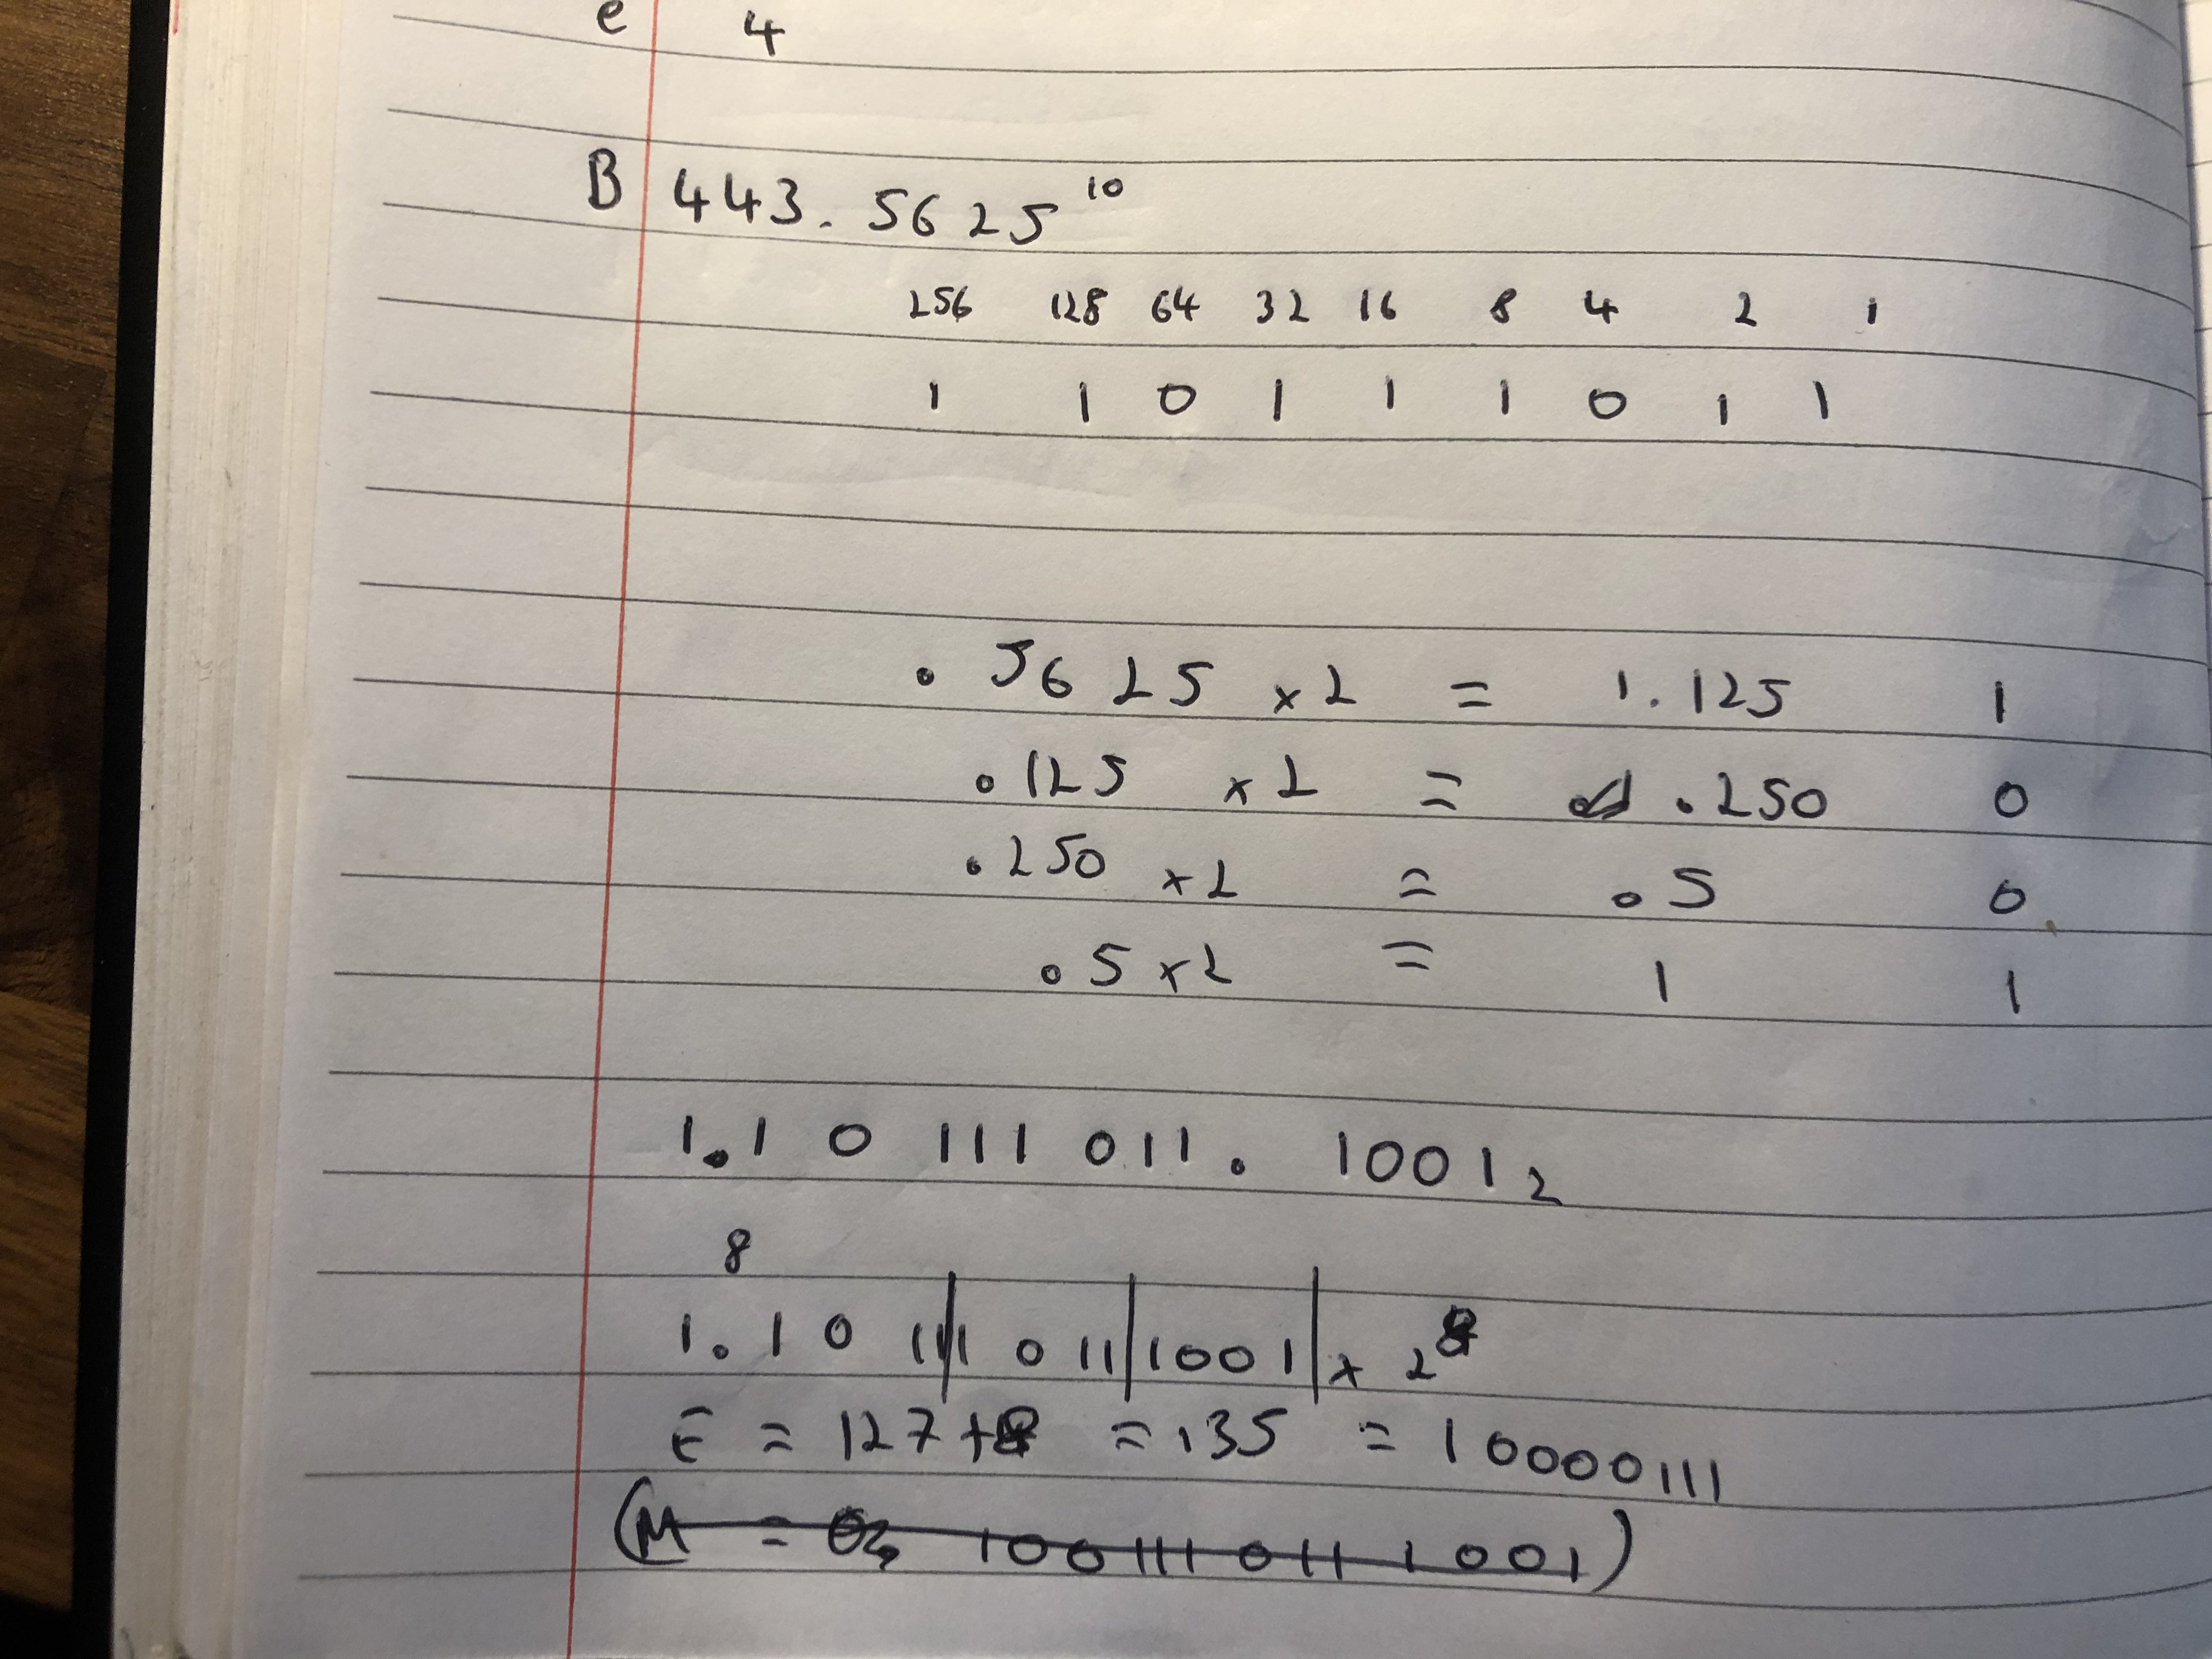 e 4
B 443.5625 10
256 128 64 32 16 8 4 2 1
1 1 0 1 1 1 0 1 1
.5625 x2 = 1.125 1
.125 x2 = .250 0
.250 x2 = .5 0
.5 x2 = 1 1
1.10 111 011. 1001 2
8
1.10 111 011 1001 x 2 8
E = 127 + 8 = 135 = 10000111
(M = 100111 011 1001)